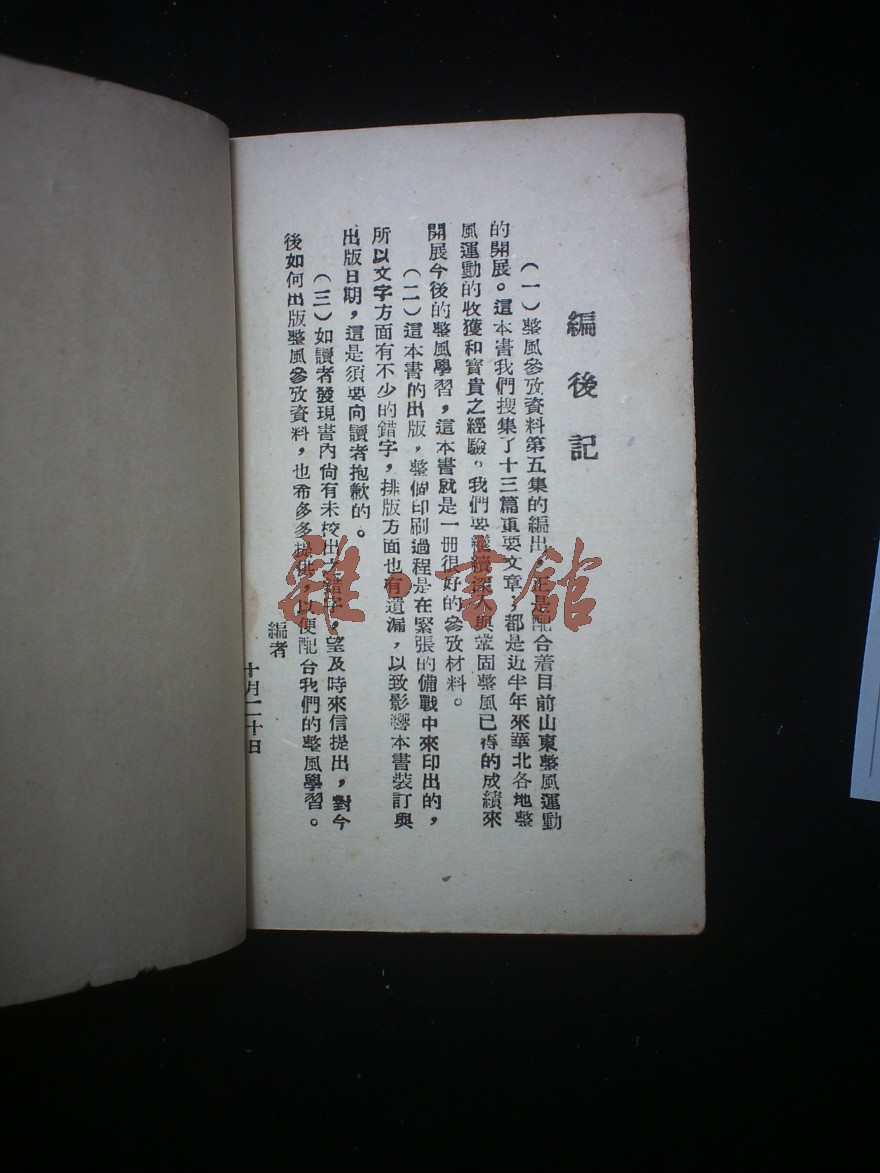 編後記
（一）整風參攷資料第五集的編出，正是配合着目前山東整風運動
的開展。這本書我們搜集了十三篇重要文章，都是近半年來華北各地整
風運動的收獲和寶貴之經驗。我們要繼續深入與鞏固整風已得的成績來
開展今後的整風學習，這本書就是一册很好的參攷材料。
（二）這本書的出版，整個印刷過程是在緊張的備戰中來印出的，
所以文字方面有不少的錯字，排版方面也有遺漏，以致影響本書裝訂與
出版日期，這是須要向讀者抱歉的。
（三）如讀者發現書內尚有未校出之錯字，望及時來信提出，對今
後如何出版整風參攷資料，也希多多提供，以便配合我們的整風學習。
編者
十月二十日
雜·書館